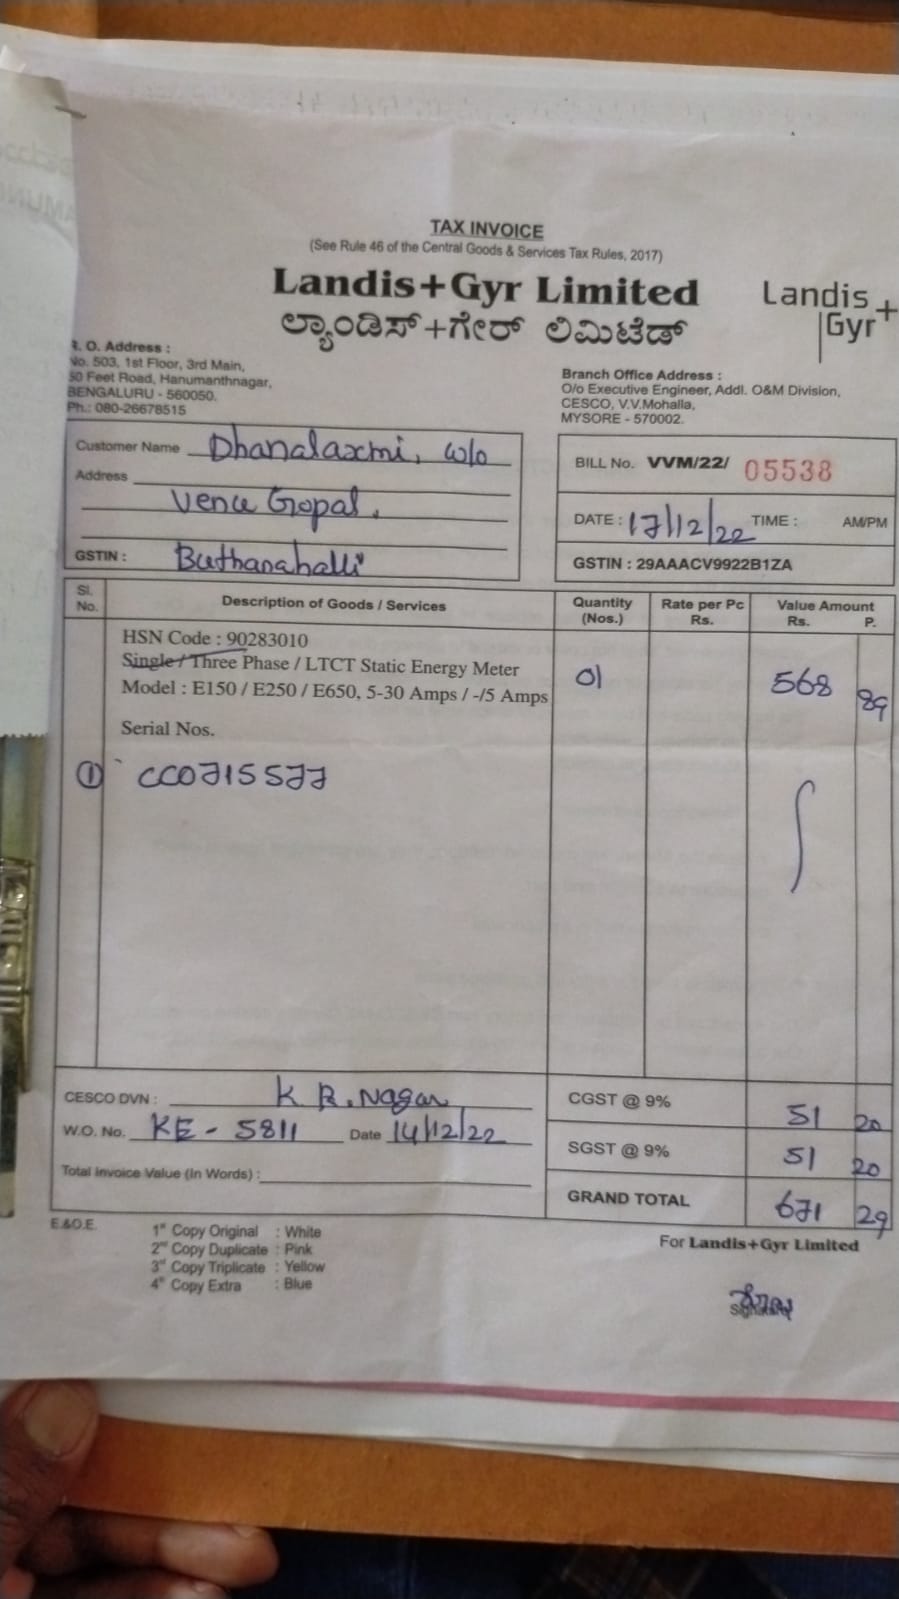 TAX INVOICE
(See Rule 46 of the Central Goods & Services Tax Rules, 2017)
Landis+Gyr Limited
ಲ್ಯಾಂಡಿಸ್+ಗೇರ್ ಲಿಮಿಟೆಡ್
Landis
Gyr+
R. O. Address :
No. 503, 1st Floor, 3rd Main,
50 Feet Road, Hanumanthnagar,
BENGALURU - 560050.
Ph.: 080-26678515
Branch Office Address :
O/o Executive Engineer, Addl. O&M Division,
CESCO, V.V.Mohalla,
MYSORE - 570002.
Customer Name Dhanalaxmi, w/o
Address
Venu Gopal,
GSTIN : Buthanahalli
BILL No. VVM/22/ 05538
DATE : 17/12/22 TIME : AM/PM
GSTIN : 29AAACV9922B1ZA
Sl. No. Description of Goods / Services Quantity (Nos.) Rate per Pc Rs. Value Amount Rs. P.
HSN Code : 90283010
Single / Three Phase / LTCT Static Energy Meter
Model : E150 / E250 / E650, 5-30 Amps / -/5 Amps 01 568 89
Serial Nos.
① CC0715577
CESCO DVN : K R. Nagar
W.O. No. KE - 5811 Date 14/12/22
Total Invoice Value (In Words) :
CGST @ 9% 51 20
SGST @ 9% 51 20
GRAND TOTAL 671 29
E.&O.E.
1st Copy Original : White
2nd Copy Duplicate : Pink
3rd Copy Triplicate : Yellow
4th Copy Extra : Blue
For Landis+Gyr Limited
Signature